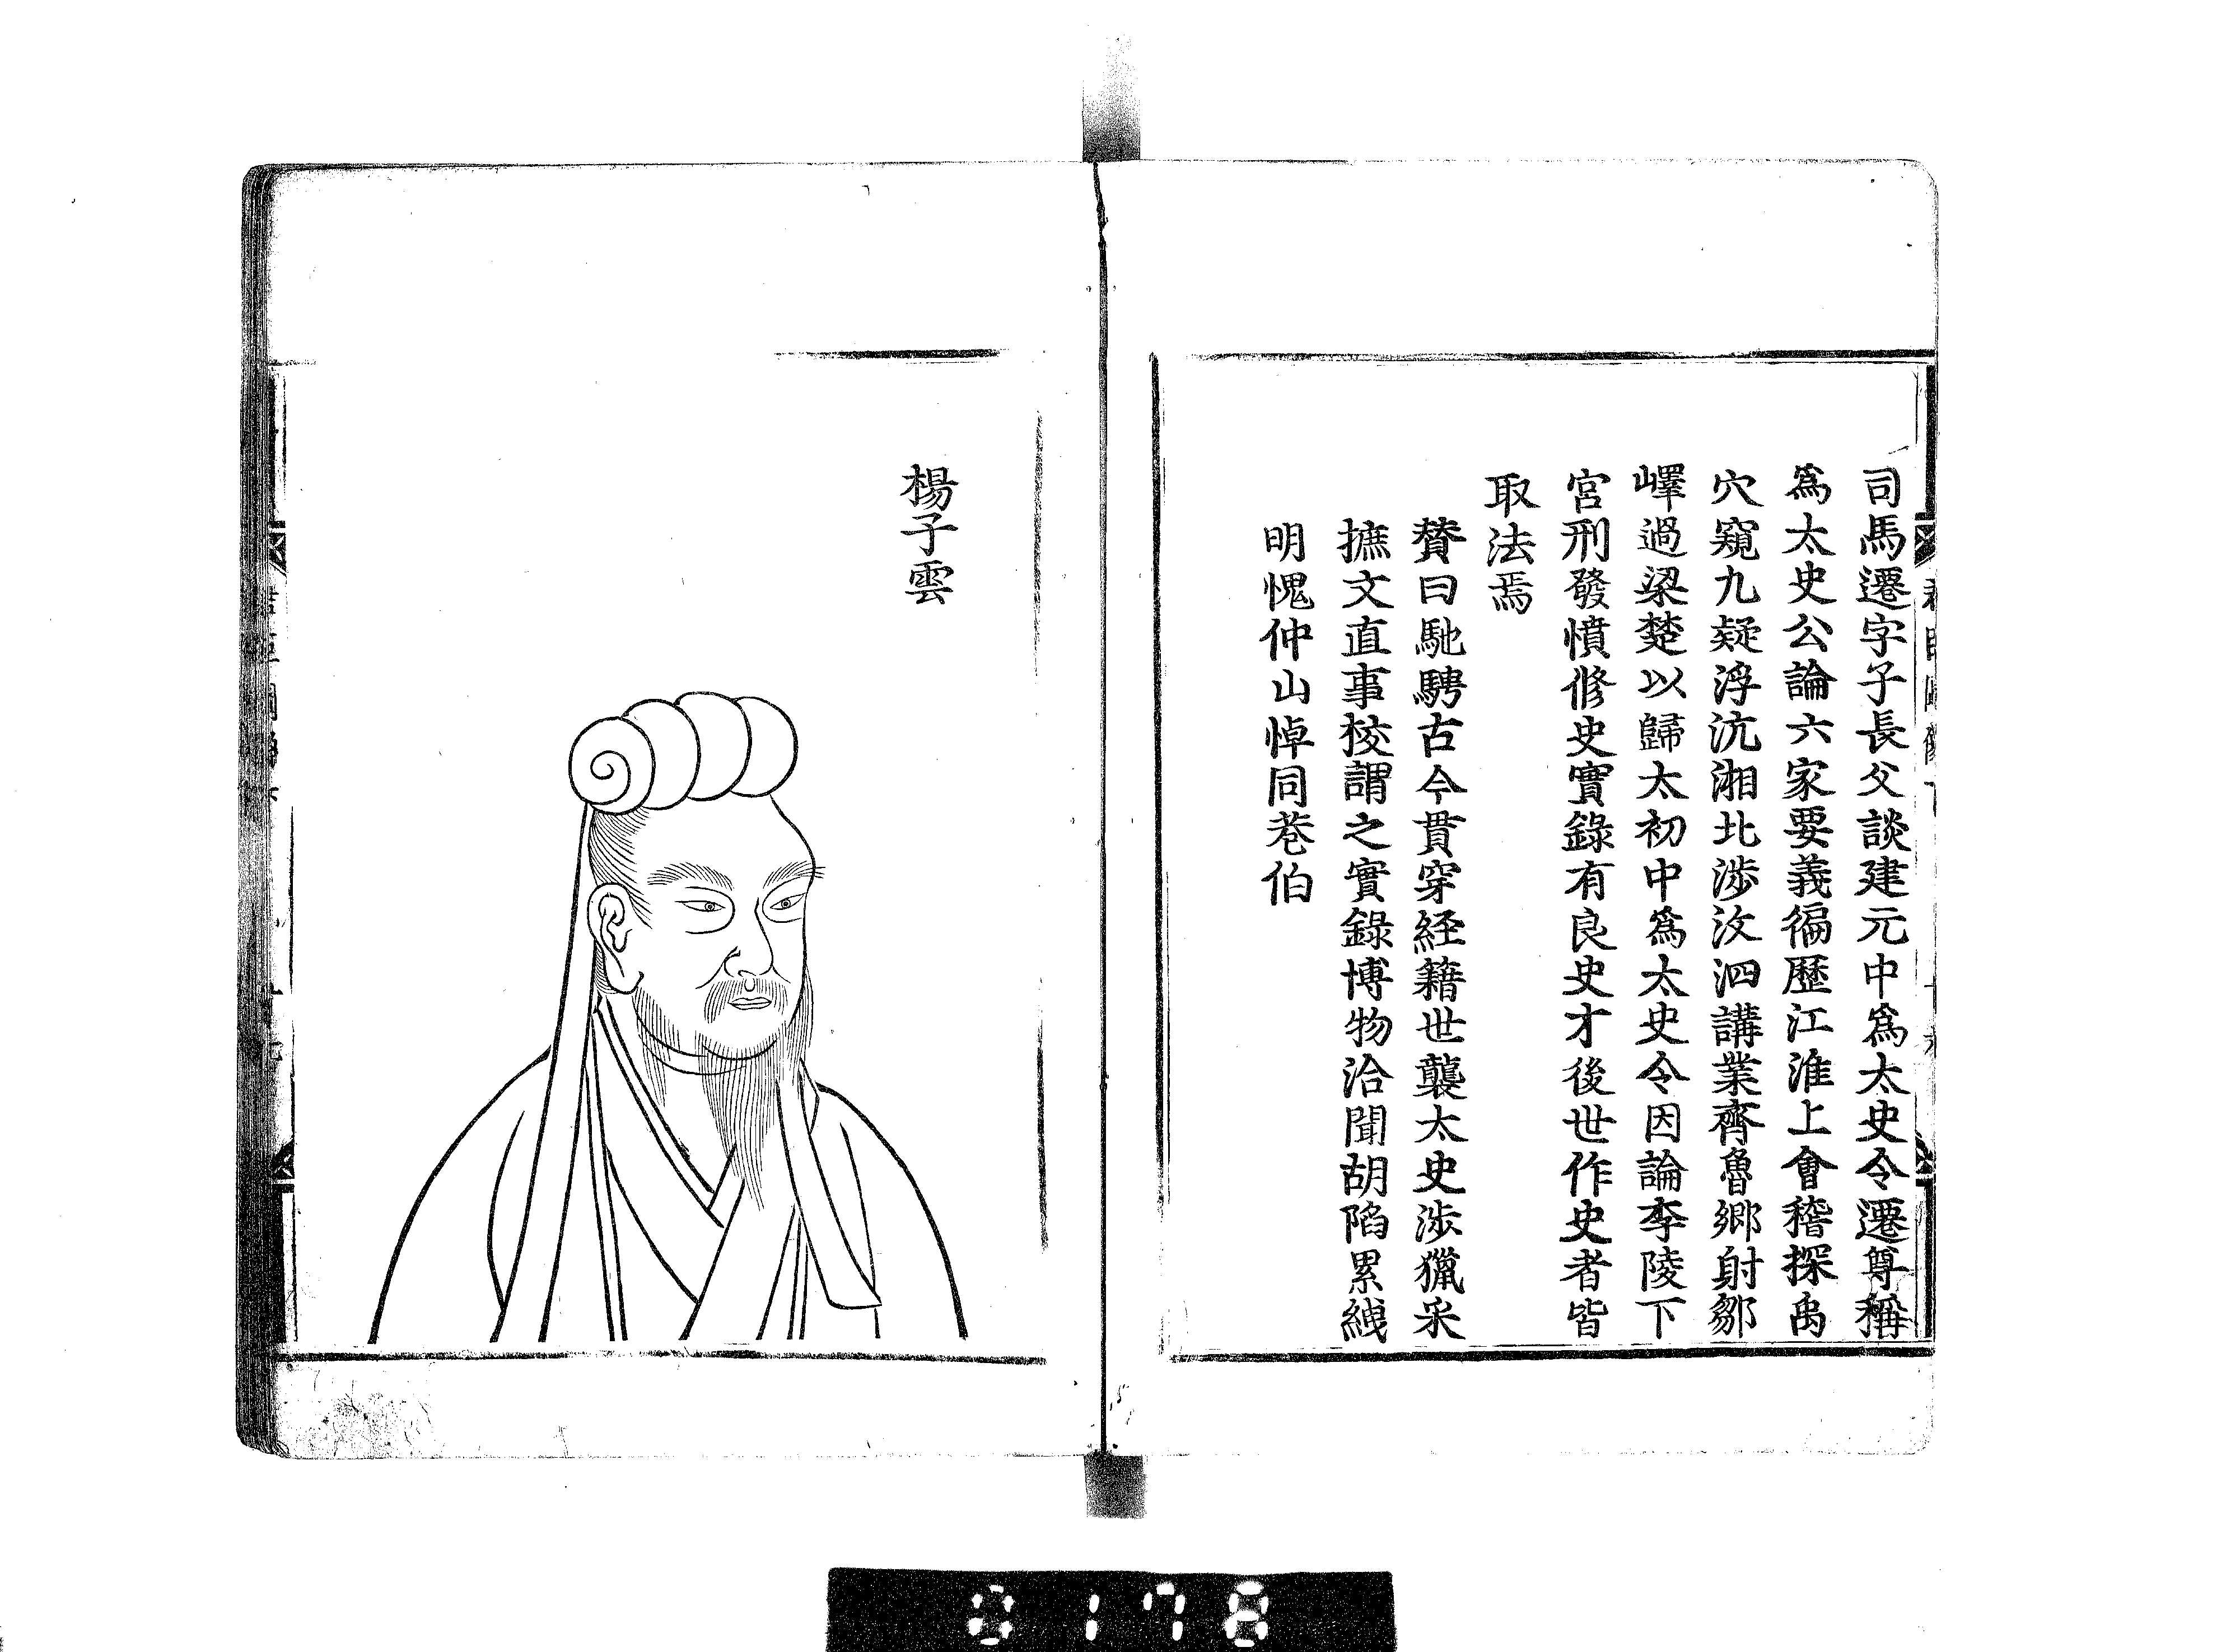 司馬遷字子長父談建元中爲太史令遷尊稱
爲太史公論六家要義徧歷江淮上會稽探禹
穴窺九疑浮沅湘北涉汶泗講業齊魯鄉射鄒
嶧過梁楚以歸太初中爲太史令因論李陵下
宮刑發憤修史實錄有良史才後世作史者皆
取法焉
賛曰馳騁古今貫穿経籍世襲太史涉獵采
摭文直事校謂之實錄博物洽聞胡陷累絏
明愧仲山悼同巷伯
楊子雲
0178